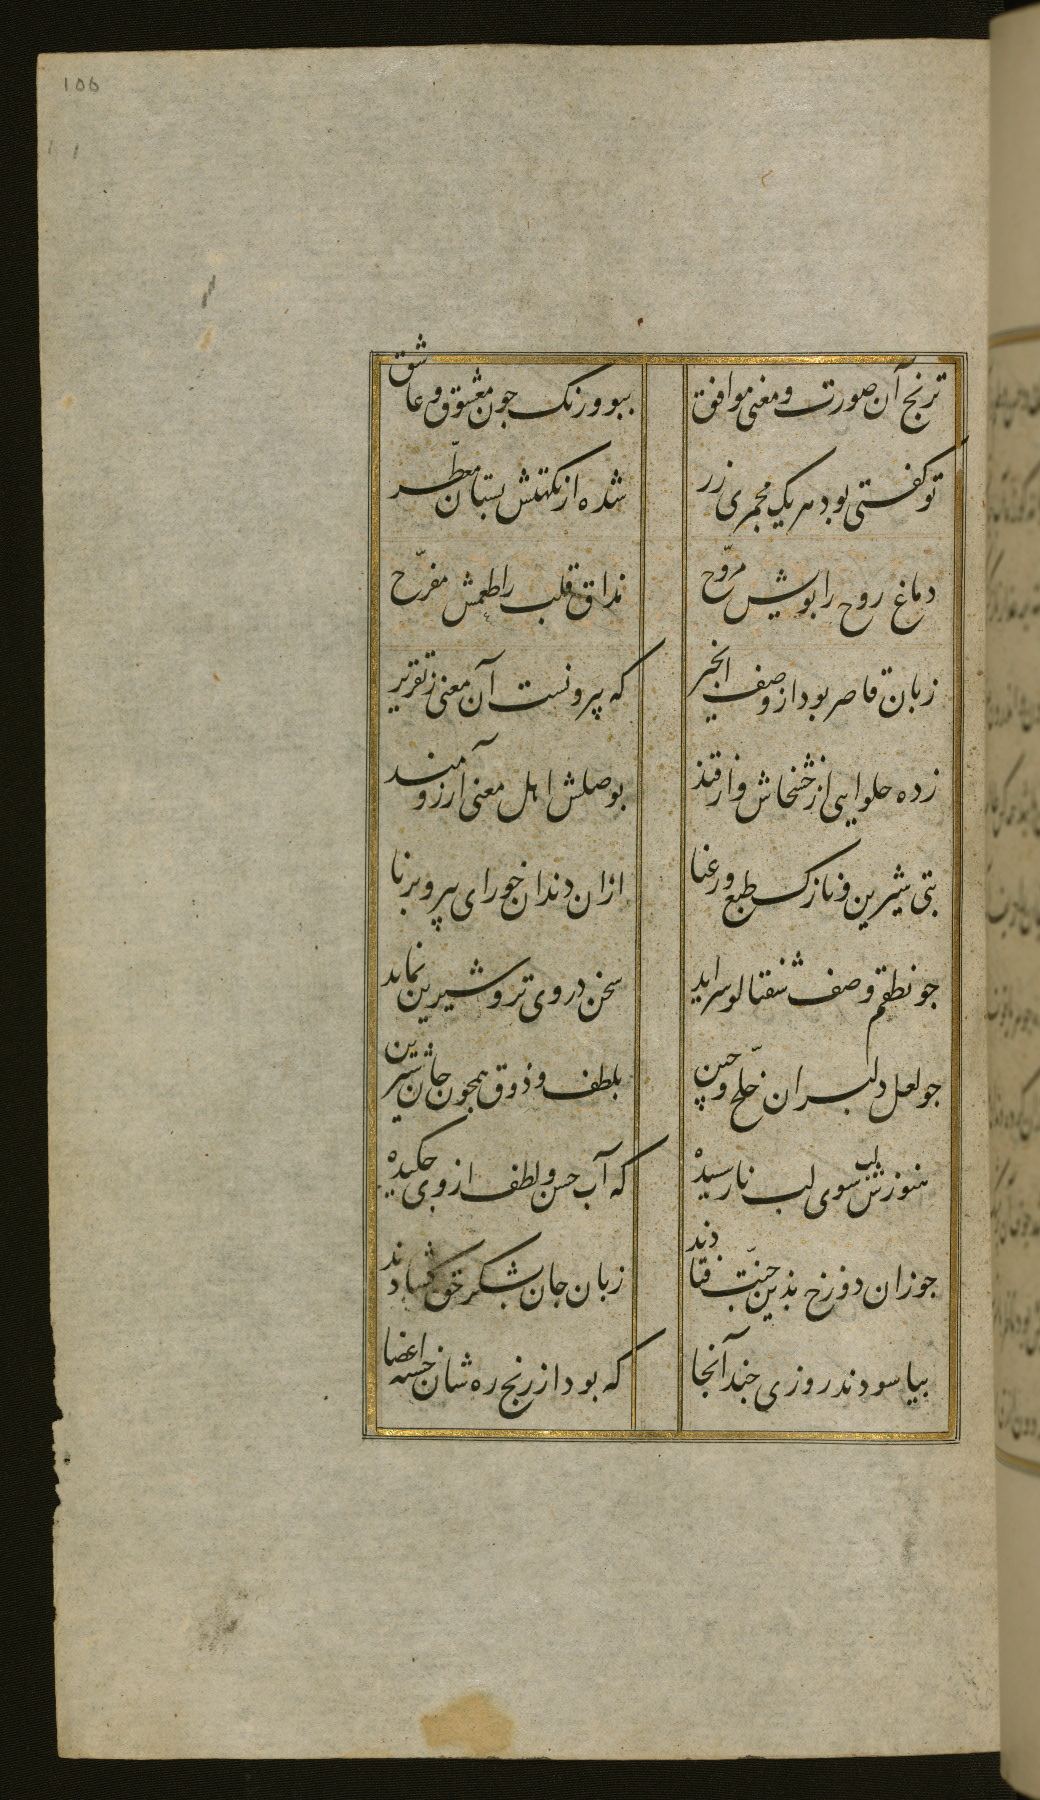 106
ترنج آن صورت و معنی موافق ببو و رنک جون معشوق و عاشق
تو کفتی بود هر یک مجمری زر شده از نکهتش بستان معطّر
دماغ روح را بویش مروّح مذاق قلب را طعمش مفرّح
زبان قاصر بود از وصف انجیر که بیرونست آن معنی ز تقریر
زده حلوایی از خشخاش و از قند بوصلش اهل معنی آرزومند
بتی شیرین و نازک طبع و رعنا ازان دندان خورای پیر و برنا
جو نطقم وصف شفتالو سراید سخن در وی تر و شیرین نماید
جو لعل دلبران خلّخ و چین بلطف و ذوق همجون جان شیرین
هنوزش لب سوی لب نارسیده که آب حسن و لطف از وی جکیده
جوزان دوزخ بذین جنّت فتادند زبان جان بشکر حق کشادند
بیاسودند روزی جند آنجا که بود از رنج ره شان خسته اعضا